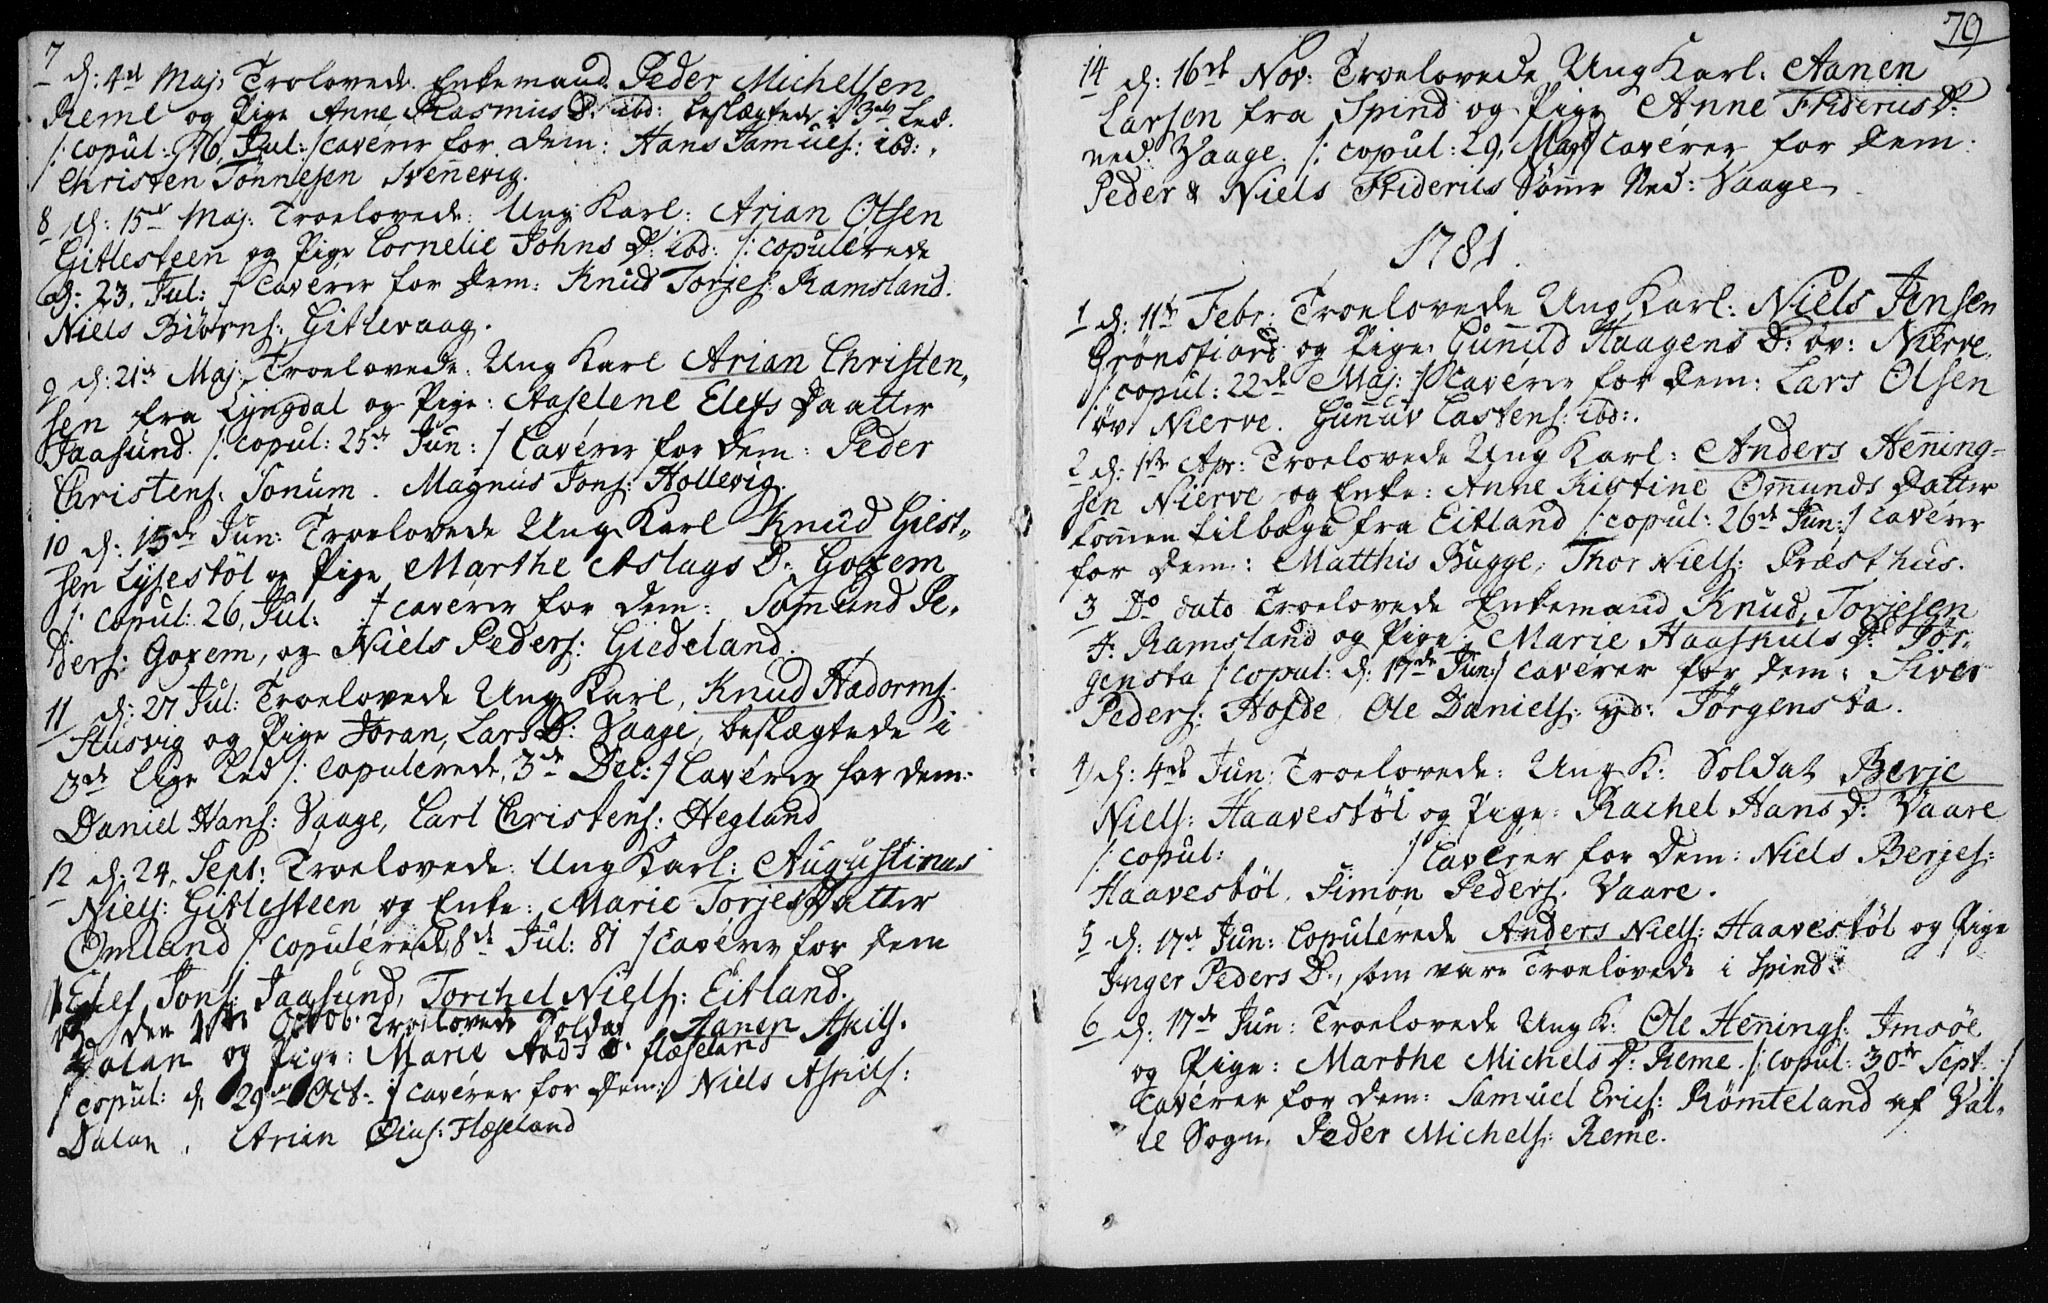 7 d: 4de Maj: Troelovede Enkemand Peder Michelsen
Reme og Pige Anne Rasmus D: ibd: beslægtede i 3de Led.
/: copul: 16, Jul: / Caverer for Dem: Hans Samuels: ibd:,
Christen Tönnesen Svennevig.
8 d: 15de Maj: Troelovede: Ung Karl: Arian Olsen
Gitlesteen og Pige Cornelie Johns D: ibd: /: copulerede
d: 23, Jul: / Caverer for Dem: Knud Torjes: Ramsland.
Niels Biörns: Gitlevaag.
9 d: 21de Maj: Troelovede: Ung Karl Arian Christen,
sen fra Lyngdal og Pige: Aaselene Elefs Daatter
Jaasund. /: copul: 25de Jun: / Caverer for Dem: Peder
Christens: Tonum. Magnus Jons: Hollevig.
10 d: 15de Jun: Troelovede Ung Karl Knud Giest,
sen Lysestöl og Pige Marthe Aslags D: Goxem
/: copul: 26, Jul: / caverer for Dem: Samund Pe,
ders: Goxem, og Niels Peders: Giedeland.
11 d: 27 Jul: Troelovede Ung Karl, Knud Hadorms:
Husvig og Pige Joran, Lars D: Vaage, beslægtede i
3de lige Led /: copulerede, 3de Dec: / Caverer for dem:
Daniel Hans: Vaage, Carl Christens: Hegland
12 d: 24, Sept: Troelovede: Ung Karl: Augustinus
Niels: Gitlesteen og Enke: Marie Torjes Datter
Omland /: copulerede, 8de Jul: 81 / Caverer for Dem
Elef Jons: Jaasund, Torchel Niels: Eitland.
13 den Octob: Troelovede Soldat Aanen Askils.
Dalan og Pige: Marie Aads D: flæseland
/ copul: d, 29de Oct: / caverer for Dem: Niels Askils:
Dalan, Arian Oius: Flæseland
79
14 d: 16de Nov: Troelovede Ung Karl: Aanen
Larsen fra Spind og Pige Anne Friderius D:
ned: Vaage. /: copul: 29, Maj / Caverer for Dem:
Peder & Niels Friderius Sønner Ned: Vaage
1781.
1 d: 11te Febr: Troelovede Ung Karl: Niels Jensen
Grönsfiord og Pige: Gunild Haagens D: öv: Nierve.
/: copul: 22de Maj: / Caverer for Dem: Lars Olsen
öv: Nierve. Gunuv Castens: ibd:.
2 d: 1ste Apr: Troelovede Ung Karl: Anders Hening-
sen Nierve og Enke: Anne Kistine Omunds Datter
kommen tilbage fra Eitland /: copul: 26de Jun: / Caverer
for Dem: Matthis Bugge, Thor Niels: Præsthus.
3 Do dato Troelovede Enkemand Knud, Torjesen
Ramsland og Pige: Marie Haaskuls D: Jör,
gensta / copul: d: 17de Jun: / caverer for dem: Siver
Peders: Hofde, Ole Daniels: yd: Jörgensta.
4 d: 4de Jun: Troelovede: Ung K: Soldat Berje
Niels: Haavestöl og Pige: Rachel Hans D: Vaare
/: copul: / Caverer for Dem: Niels Berjes:
Haavestöl, Simon Peders: Vaare.
5 d: 17de Jun: Copulerede Anders Niels: Haavestöl og Pige
Inger Peders D:, som vare Troelovede i Spind:
6 d: 17de Jun: Troelovede Ung K: Ole Hennings: Imsöe
og Pige: Marthe Michels D: Reme. /: copul: 30te Sept: /
Caverer for Dem: Samuel Erics: Römteland af Val,
le Sogn, Peder Michels: Reme.